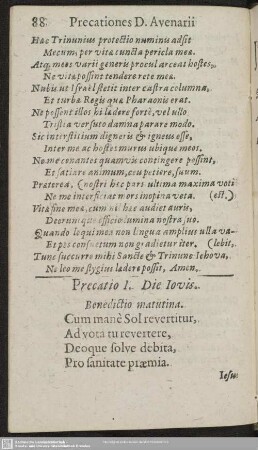 88 Precationes D. Avenarii
Hac Trinunius protectio numinis adsit
Mecum, per vitæ cuncta pericla meæ.
Atq; meos varii generis procul arceat hostes,
Ne vitæ possint tendere rete meæ.
Nubis ut Israël stetit inter castra columna,
Et turbæ Regis quæ Pharaonis erat.
Ne possent illos hi lædere fortè, vel ullo
Tristia versuto damna parare modo.
Sic interstitium digneris & igneus esse,
Inter me ac hostes murus ubique meos.
Ne me conantes quamvis contingere possint,
Et satiare animum, ceu petiere, suum.
Præterea, (nostri hæc pars ultima maxima voti
Ne me interficiat mors inopina veta. (est.)
Vita fine mea, cum nil hæc audiet auris,
Destrunt officio lumina nostra suo.
Quando loqui mea non lingua amplius ulla va-
Et pes consuetum non gradietur iter. (lebit,
Tunc succurre mihi Sancte & Trinune Iehova,
Ne leo me stygius lædere possit, Amen.
Precatio I. Die Iovis.
Benedictio matutina.
Cum manè Sol revertitur,
Ad vota tu revertere,
Deoque solve debita,
Pro sanitate præmia.
Iesu